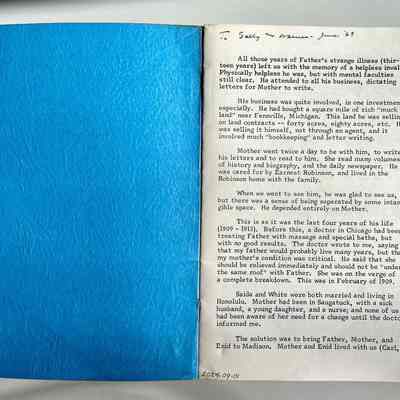 To Sally
June '69
All those years of Father's strange illness (thir-
teen years) left us with the memory of a helpless inval
Physically helpless he was, but with mental faculties
still clear. He attended to all his business, dictating
letters for Mother to write.
His business was quite involved, in one investment
especially. He had bought a square mile of rich "muck
land" near Fennville, Michigan. This land he was sellin
on land contracts -- forty acres, eighty acres, etc. H
was selling it himself, not through an agent, and it
involved much "bookkeeping" and letter writing.
Mother went twice a day to be with him, to write
his letters and to read to him. She read many volumes
of history and biography, and the daily newspaper. He
was cared for by Earnest Robinson, and lived in the
Robinson home with the family.
When we went to see him, he was glad to see us,
but there was a sense of being separated by some intan
gible space. He depended entirely on Mother.
This is as it was the last four years of his life
(1909 - 1913). Before this, a doctor in Chicago had been
treating Father with massage and special baths, but
with no good results. The doctor wrote to me, saying
that my father would probably live many years, but tha
my mother's condition was critical. He said that she
should be relieved immediately and should not be "under
the same roof" with Father. She was on the verge of
a complete breakdown. This was in February of 1909.
Saide and White were both married and living in
Honolulu. Mother had been in Saugatuck, with a sick
husband, a young daughter, and a nurse; and none of us
had been aware of her need for a change until the docto
informed me.
The solution was to bring Father, Mother, and
Enid to Madison. Mother and Enid lived with us (Carl,